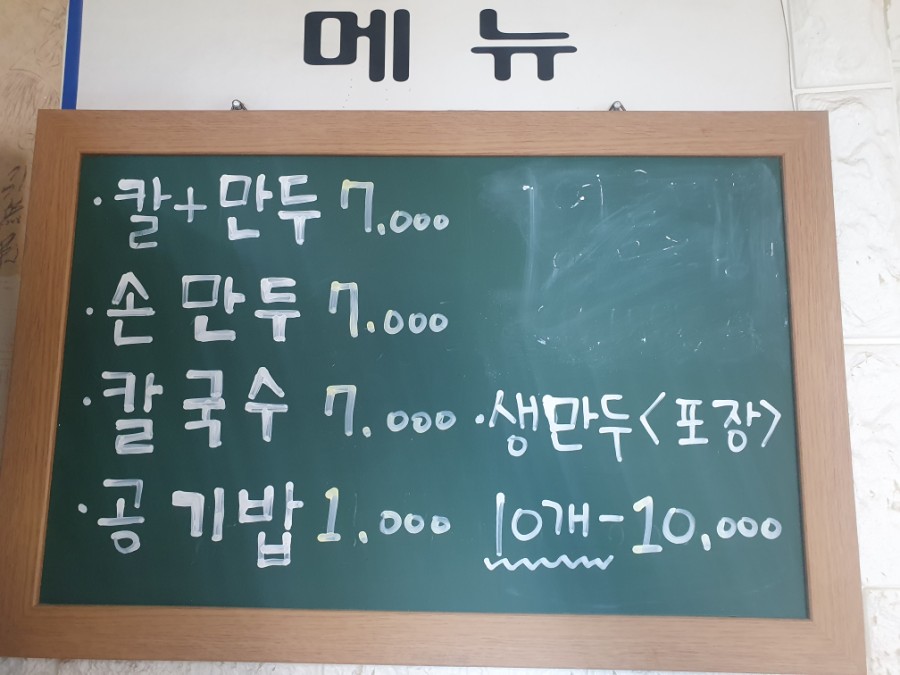 메뉴
·칼+만두 7.000
·손만두 7.000
·칼국수 7.000
·공기밥 1.000
·생만두<포장>
10개-10,000